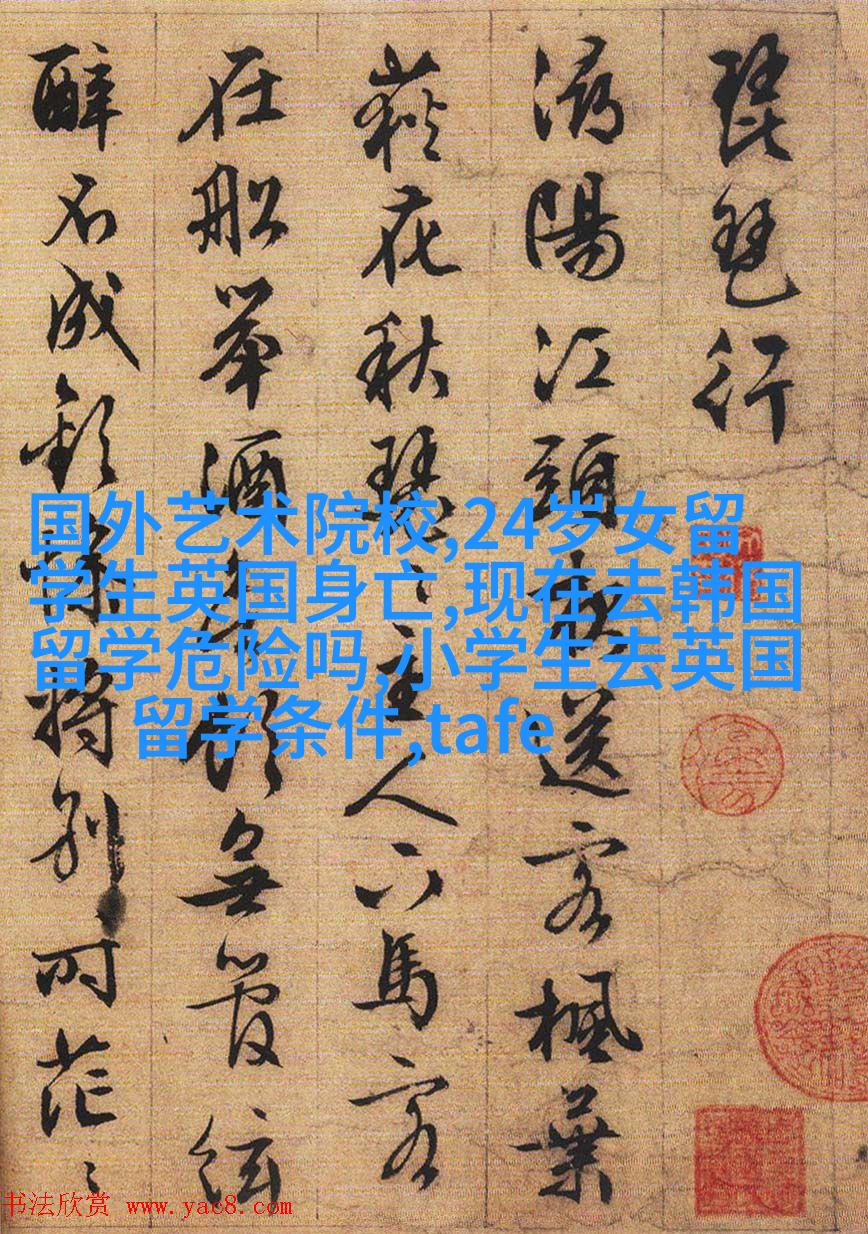 琵琶行
潯陽江頭夜送客楓葉
荻花秋瑟〻主人下馬客
在船舉酒欲飲無管絃
醉不成歡慘將別〻時茫〻
国外艺术院校,24岁女留
学生英国身亡,现在去韩国
留学危险吗,小学生去英国
留学条件,tafe
书法欣赏 www.yac8.com